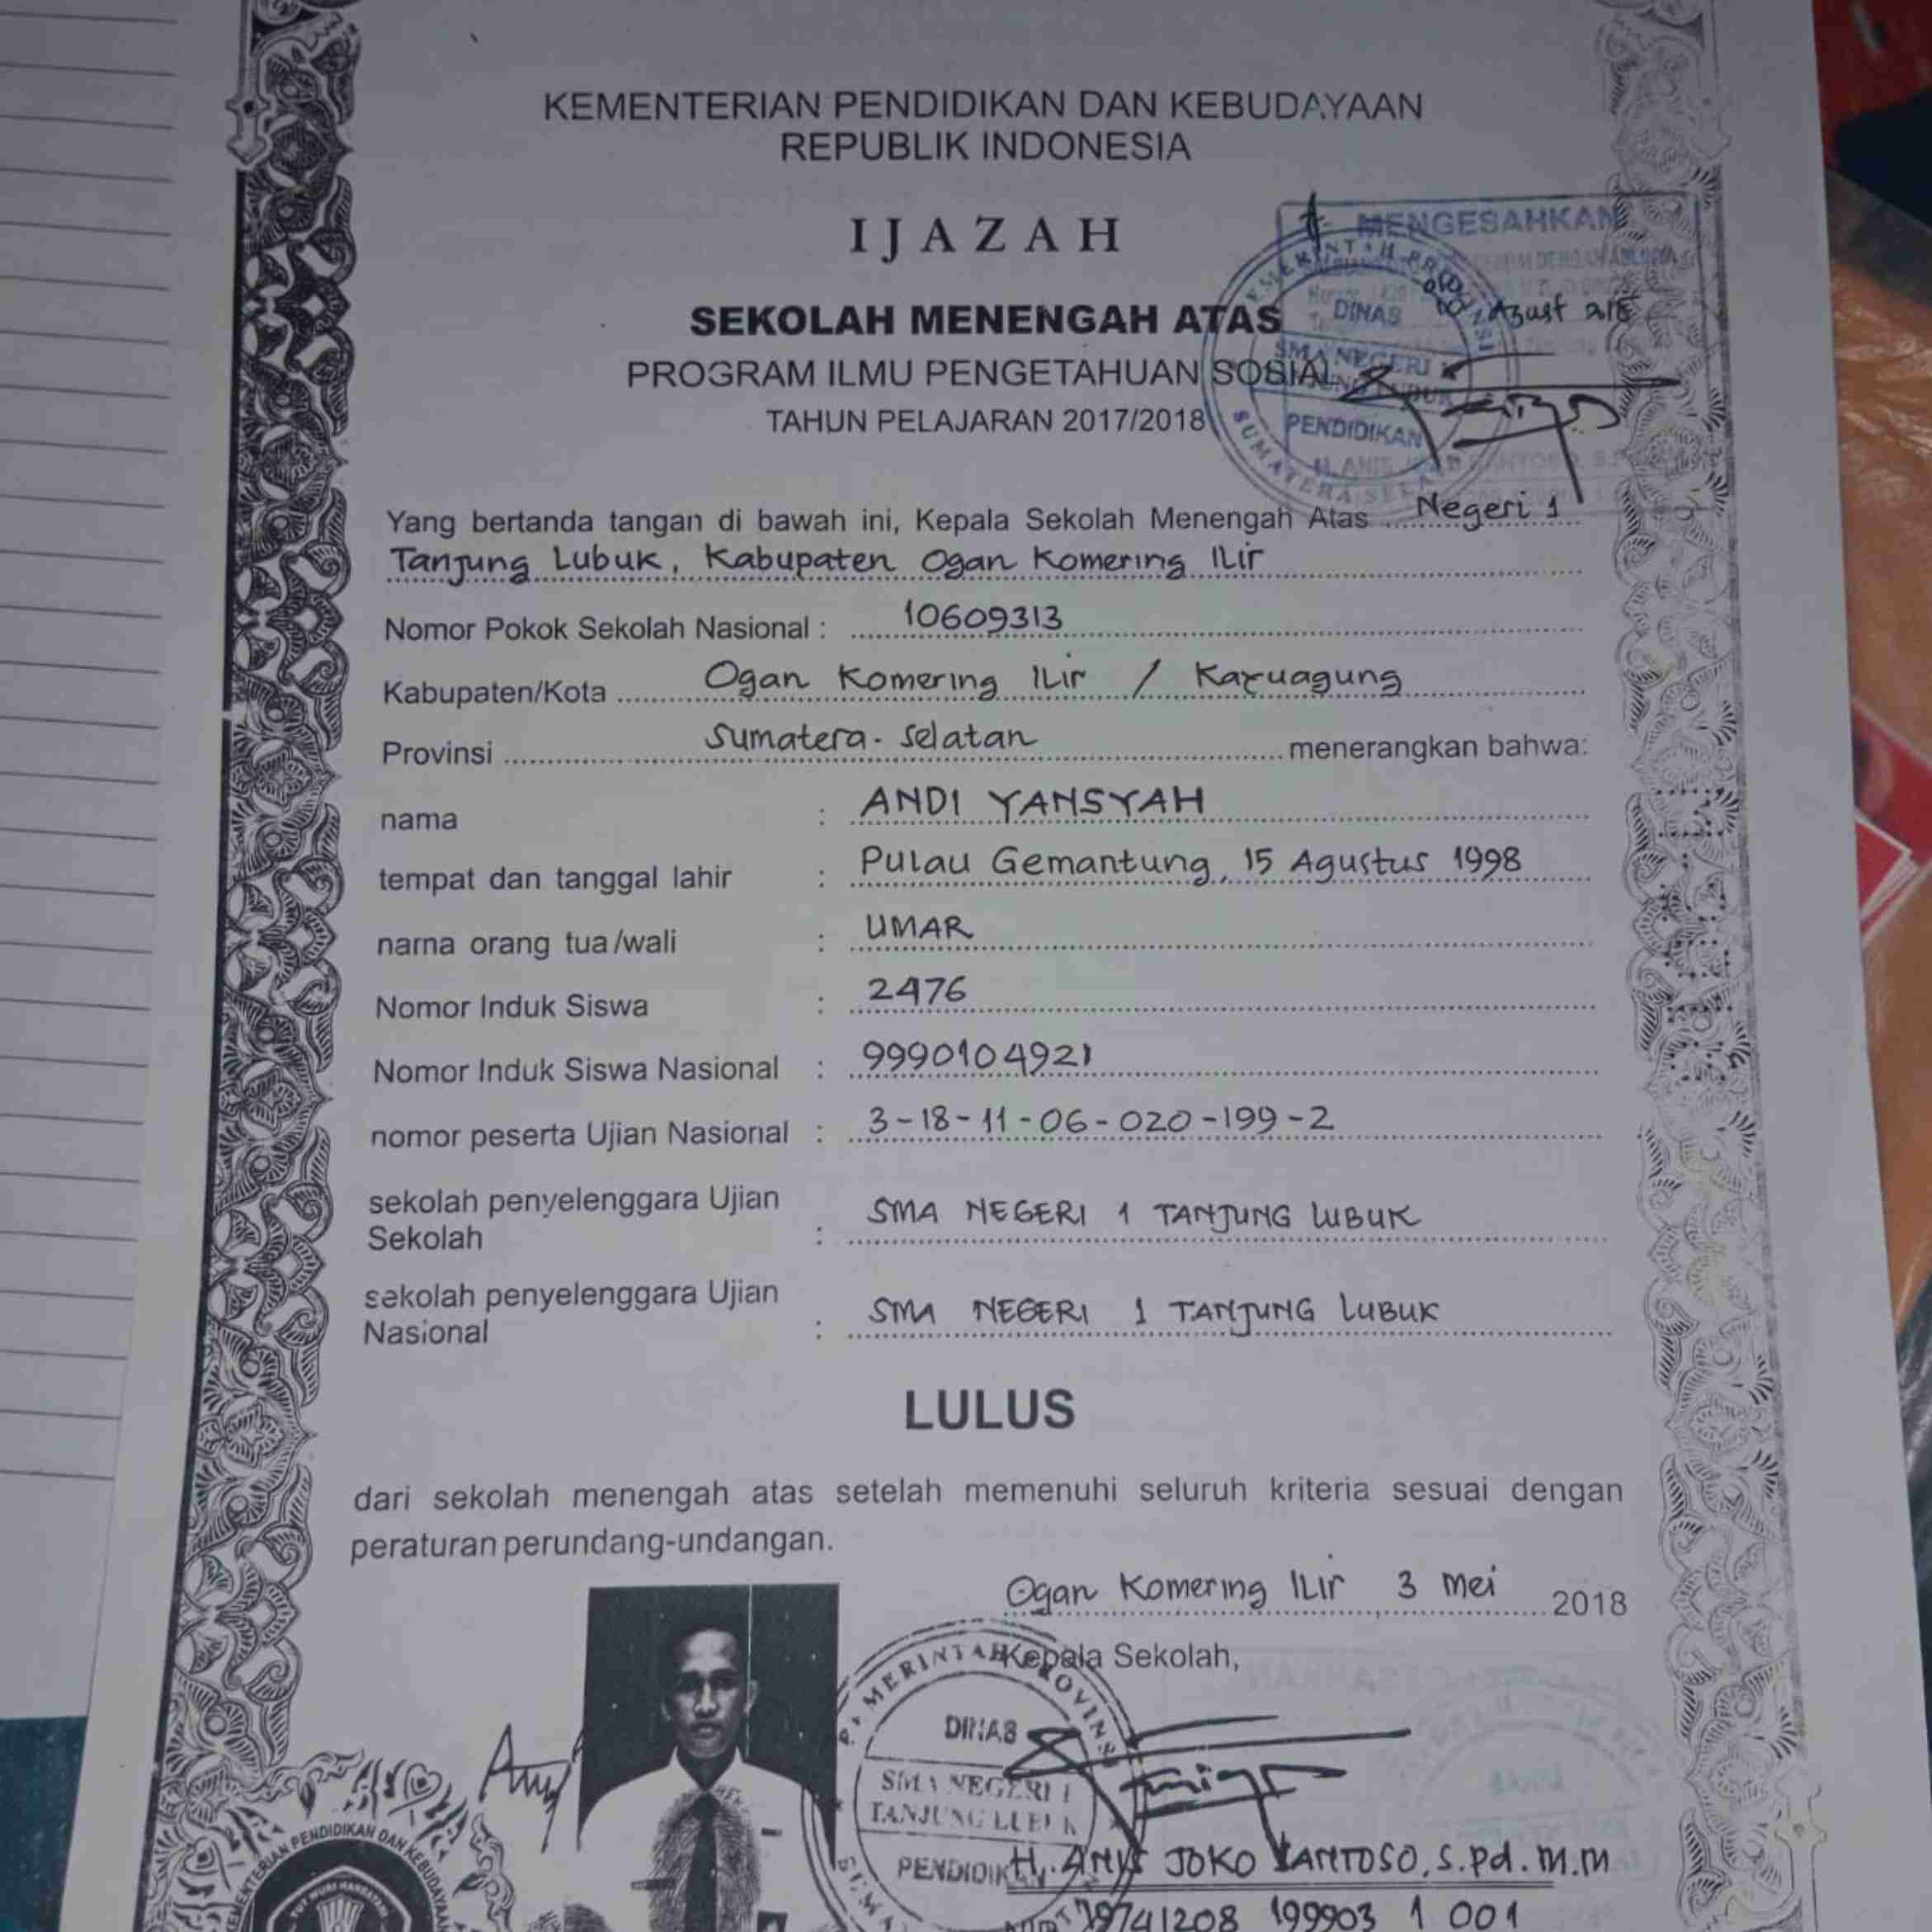 KEMENTERIAN PENDIDIKAN DAN KEBUDAYAAN
REPUBLIK INDONESIA
IJAZAH
MENGESAHKAN
SEKOLAH MENENGAH ATAS
PROGRAM ILMU PENGETAHUAN SOSIAL
TAHUN PELAJARAN 2017/2018
DINAS
SMA NEGERI 1
PENDIDIKAN
SUMATERA SELATAN
Yang bertanda tangan di bawah ini, Kepala Sekolah Menengah Atas Negeri 1
Tanjung Lubuk, Kabupaten Ogan Komering Ilir
Nomor Pokok Sekolah Nasional : 10609313
Kabupaten/Kota Ogan Komering Ilir / Kayuagung
Provinsi Sumatera-Selatan menerangkan bahwa:
nama : ANDI YANSYAH
tempat dan tanggal lahir : Pulau Gemantung, 15 Agustus 1998
nama orang tua/wali : UMAR
Nomor Induk Siswa : 2476
Nomor Induk Siswa Nasional : 9990104921
nomor peserta Ujian Nasional : 3-18-11-06-020-199-2
sekolah penyelenggara Ujian
Sekolah : SMA NEGERI 1 TANJUNG LUBUK
sekolah penyelenggara Ujian
Nasional : SMA NEGERI 1 TANJUNG LUBUK
LULUS
dari sekolah menengah atas setelah memenuhi seluruh kriteria sesuai dengan
peraturan perundang-undangan.
Ogan Komering Ilir, 3 Mei 2018
Kepala Sekolah,
DINAS
SMA NEGERI 1
TANJUNG LUBUK
PENDIDIKAN
H. ANIS JOKO SANTOSO, S.Pd. M.M
19741208 199903 1 001
KEMENTERIAN PENDIDIKAN DAN KEBUDAYAAN
TUT WURI HANDAYANI